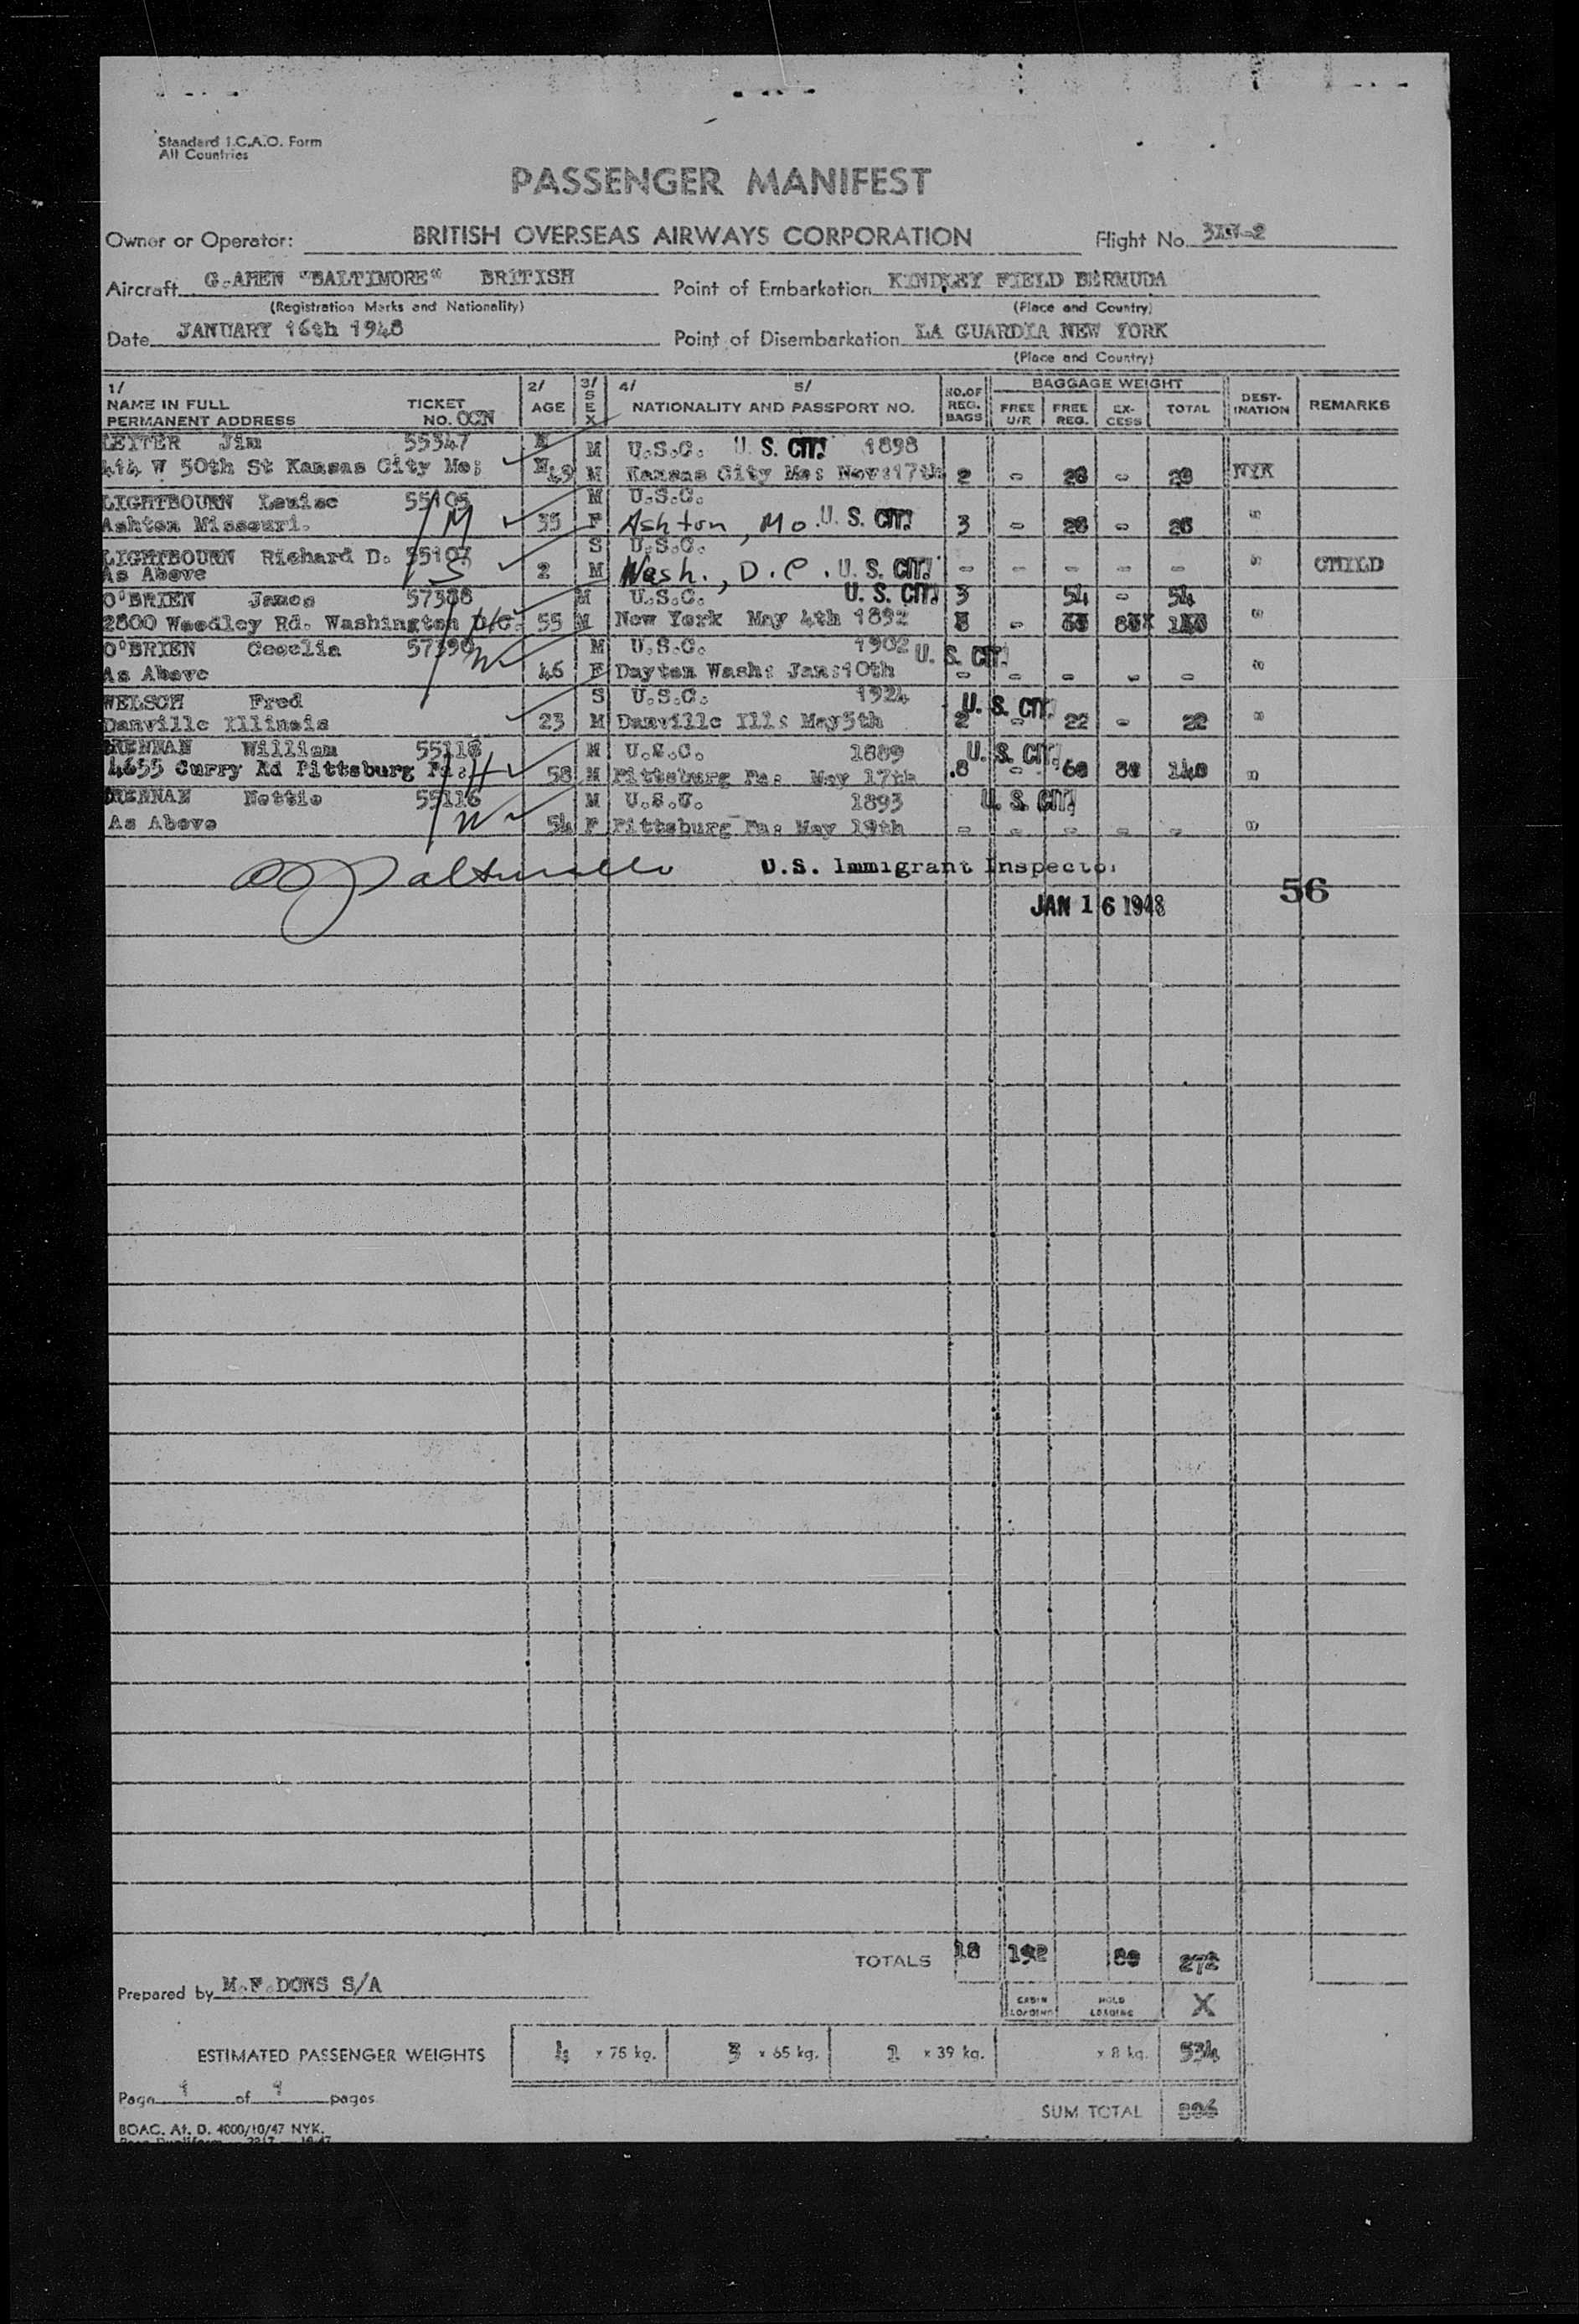 Standard I.C.A.O. Form
All Countries
PASSENGER MANIFEST
Owner or Operator: BRITISH OVERSEAS AIRWAYS CORPORATION Flight No.
Aircraft G.AHEN "BALTIMORE" BRITISH Point of Embarkation KINDLEY FIELD BERMUDA
(Registration Marks and Nationality) (Place and Country)
Date JANUARY 16th 1948 Point of Disembarkation LA GUARDIA NEW YORK
(Place and Country)
1/ 2/ 3/ 4/ 5/ BAGGAGE WEIGHT
NAME IN FULL TICKET AGE SEX NATIONALITY AND PASSPORT NO. NO. OF REG. BAGS FREE U/R FREE REG. EX-CESS TOTAL DEST-INATION REMARKS
PERMANENT ADDRESS NO. OCN
LEITER Jim 55347 M U.S.C. U. S. CIT. 1898
414 W 50th St Kansas City Mo; 49 M Kansas City Mo: Nov:17th 2 - - NYK
LIGHTBOURN Louise 55105 M U.S.C.
Ashton Missouri. M 35 F Ashton, Mo. U. S. CIT. 3 - 26 - 26 "
LIGHTBOURN Richard D. 55107 S U.S.C.
As Above S 2 M Wash., D.C. U. S. CIT. - - - - - " CHILD
O'BRIEN James 57388 M U.S.C. U. S. CIT. 3 54 - 54
2800 Woodley Rd. Washington 55 M New York May 4th 1892 - "
O'BRIEN Cecelia 57390 M U.S.C. 1902 U. S. CIT.
As Above W 46 F Dayton Wash: Jan:10th - - - - - "
WELSCH Fred S U.S.C. 1924 U. S. CIT.
Danville Illinois 23 M Danville Ill: May5th 2 - 22 - 22 "
BRENNAN William 55118 M U.S.C. 1889 U. S. CIT.
4655 Curry Rd Pittsburg Pa: H 58 M Pittsburg Pa: May 17th 8 - 60 80 140 "
BRENNAN Nettie 55116 M U.S.C. 1893 U. S. CIT.
As Above W 54 F Pittsburg Pa: May 19th - - - - - "
U.S. Immigrant Inspector
56
JAN 16 1948
TOTALS 18 192 80 272
Prepared by M.F.DONS S/A
CABIN LOADING HOLD LOADING X
ESTIMATED PASSENGER WEIGHTS 4 x 75 kg. 3 x 65 kg. 1 x 39 kg. x 8 kg. 534
Page 1 of 1 pages
SUM TOTAL 806
BOAC. At. D. 4000/10/47 NYK.